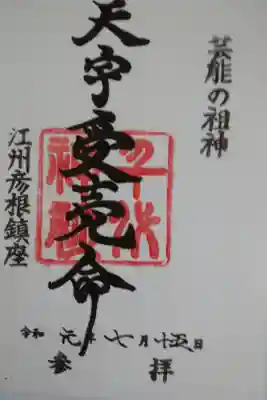 芸能の祖神
天宇受売命
江州彦根鎮座
令和 元年 七月 十五日
参 拝
千代